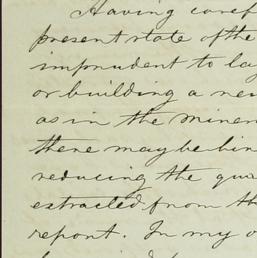 Having caref
present state of the
imprudent to lay
or building a new
as in the miner
there may be hin
reducing the qua
extracted from th
report. In my o